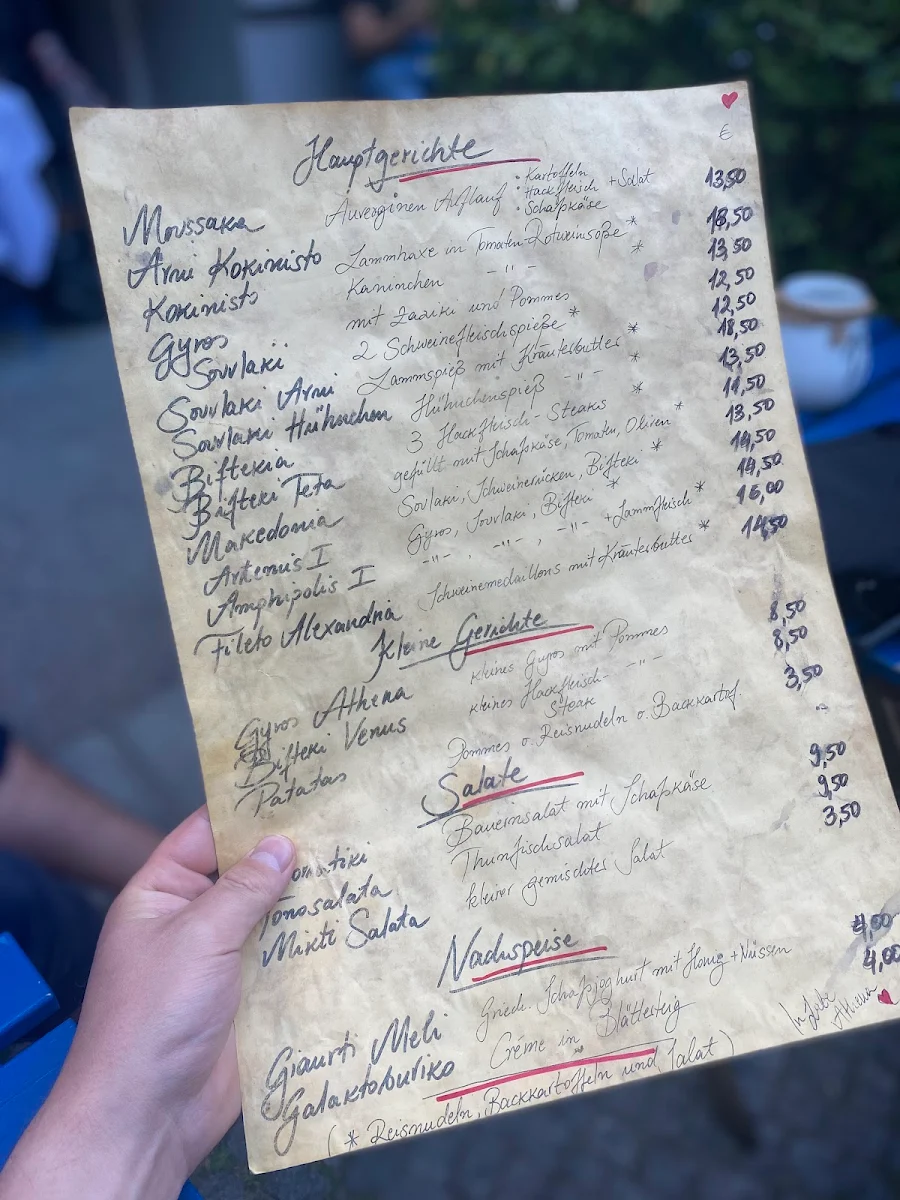 €
Hauptgerichte
Moussaka Auverginen Auflauf · Kartoffeln · Hackfleisch · Schafskäse + Salat 13,50
Arni Kokinisto Lammhaxe in Tomaten-Rotweinsoße * 18,50
Kokinisto Kaninchen -"- * 13,50
Gyros mit Zaziki und Pommes 12,50
Souvlaki 2 Schweinefleischspieße * 12,50
Souvlaki Arni Lammspieß mit Kräuterbutter * 18,50
Souvlaki Hühnchen Hühnchenspieß -"- * 13,50
Biftekia 3 Hackfleisch-Steaks * 11,50
Bifteki Feta gefüllt mit Schafskäse, Tomaten, Oliven * 13,50
Makedonia Souvlaki, Schweinerücken, Bifteki * 14,50
Artemis I Gyros, Souvlaki, Bifteki * 14,50
Amphipolis I -"- , -"- , -"- + Lammfleisch * 16,00
Fileto Alexandria Schweinemedaillons mit Kräuterbutter * 14,50
Kleine Gerichte
Gyros Athena kleines Gyros mit Pommes 8,50
Bifteki Venus kleines Hackfleisch-Steak -"- 8,50
Patatas Pommes o. Reisnudeln o. Backkartof. 3,50
Salate
Bauernsalat mit Schafskäse 9,50
Tonosalata Thunfischsalat 9,50
Mikti Salata kleiner gemischter Salat 3,50
Nachspeise
Giaurti Meli Griech. Schafsjoghurt mit Honig + Nüssen 4,00
Galaktoburiko Créme in Blätterteig 4,00
In Liebe
Athena
( * Reisnudeln, Backkartoffeln und Salat )